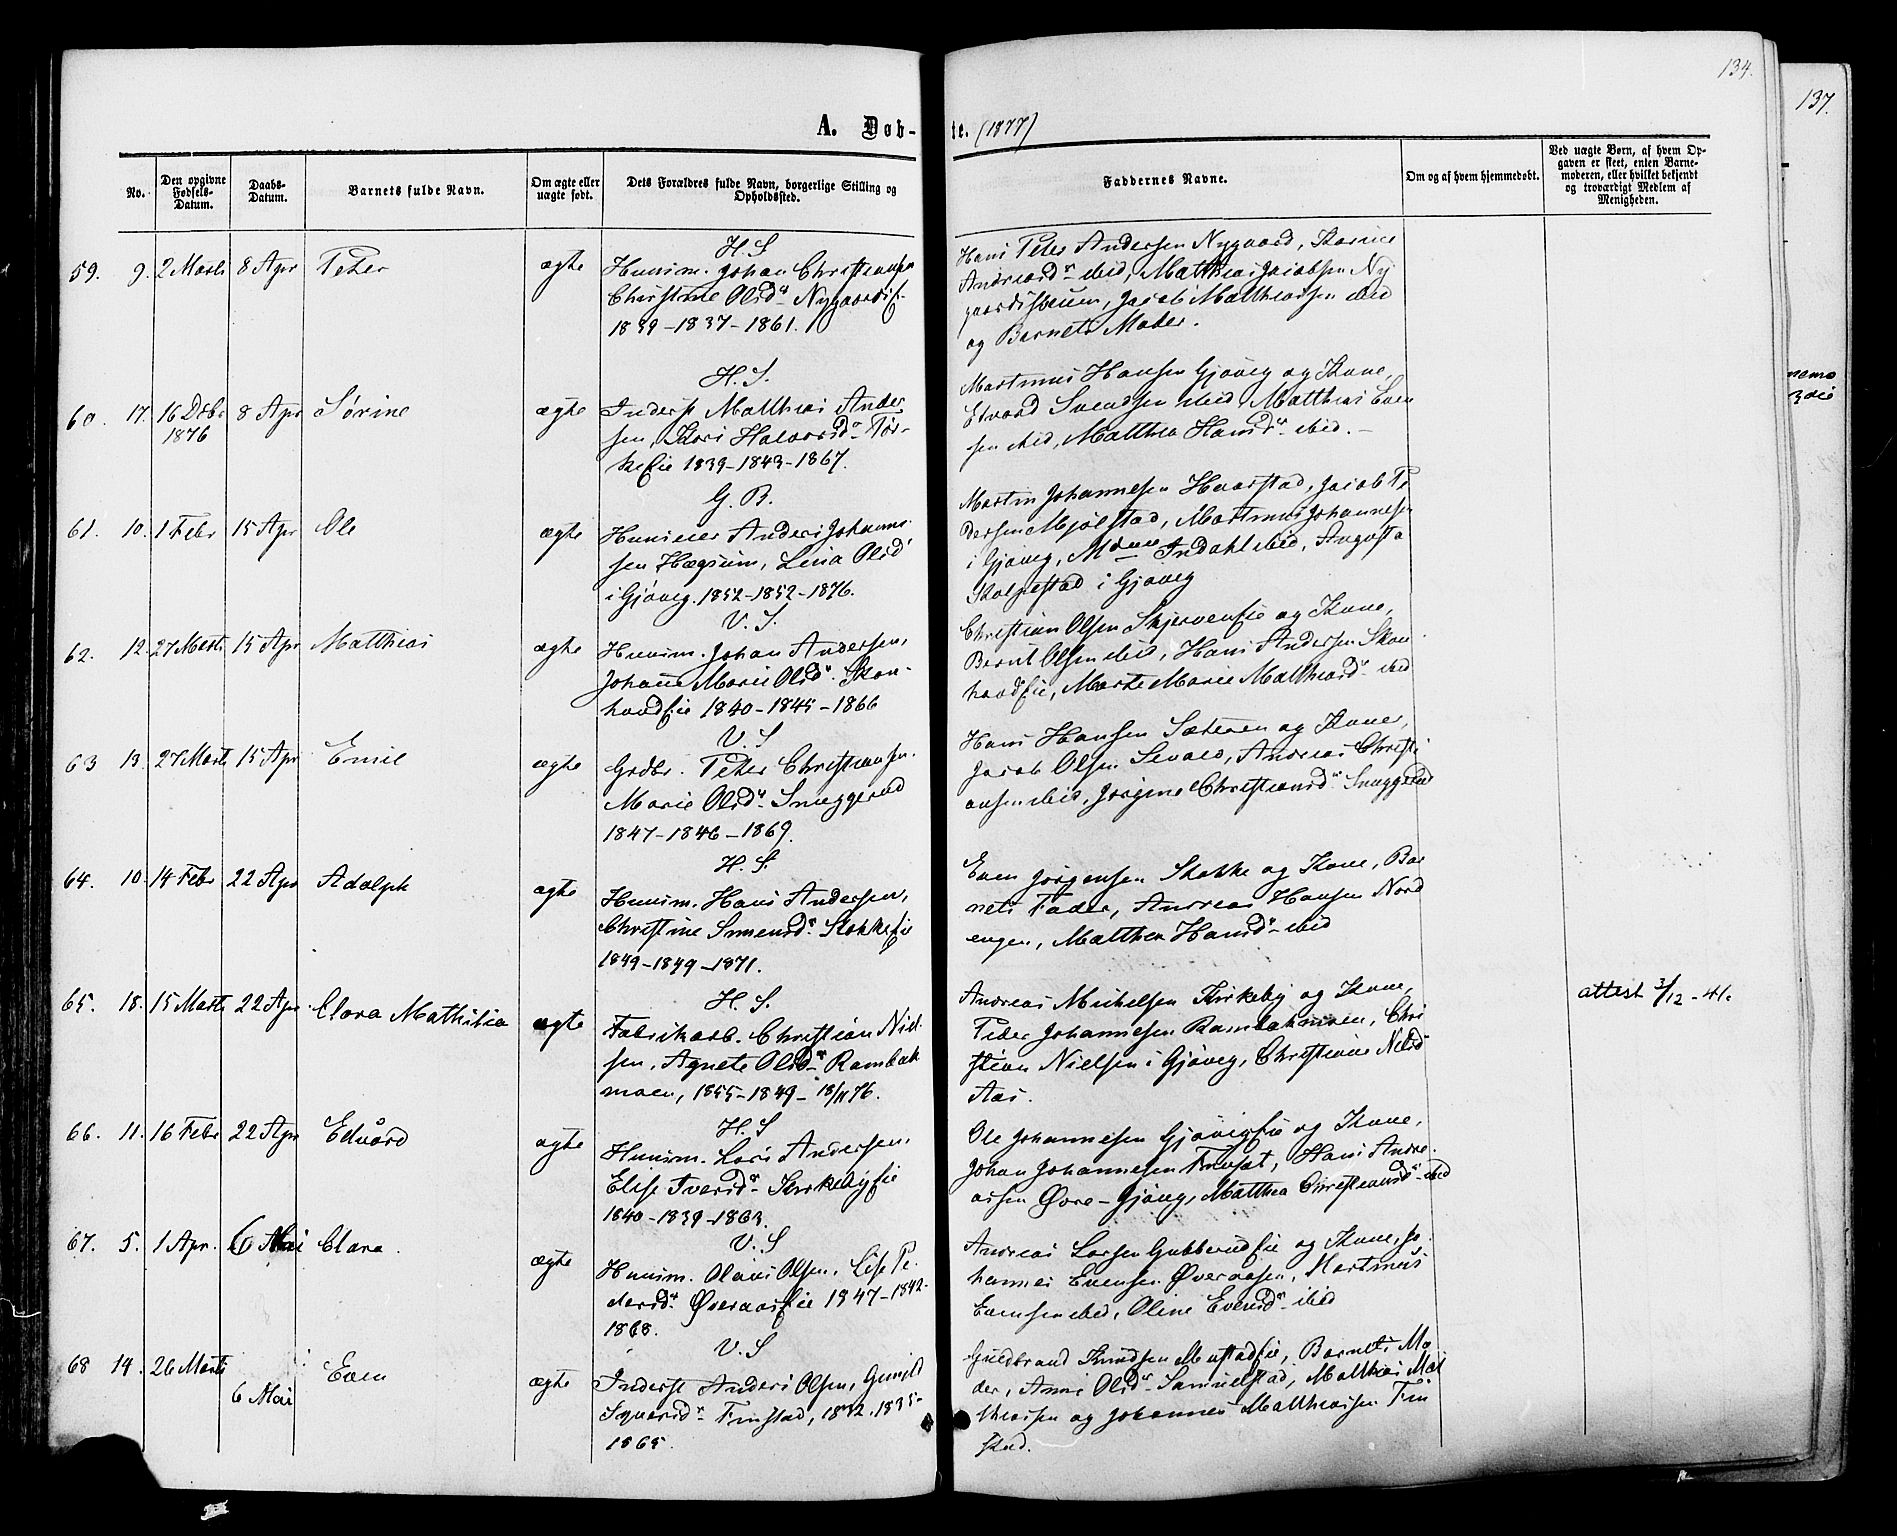 134.
137.
A. Døb-
te. (1877)
No.
Den opgivne Fødsels-Datum.
Daabs-Datum.
Barnets fulde Navn.
Om ægte eller uægte født.
Dets Forældres fulde Navn, borgerlige Stilling og Opholdssted.
Faddernes Navne.
Om og af hvem hjemmedøbt.
Ved uægte Børn, af hvem Op-
gaven er skeet, enten Barne-
moderen, eller hvilket bekjendt
og troværdigt Medlem af
Menigheden.
H. S
59. 9. 2 Marts 8 Apr Peter ægte Huusm. Johan Christiansen
Christine Olsd. Nygaards
1839-1837-1861.
Hans Peter Andersen Nygaard, Karine
Andreasd. ibid, Matthias Jacobsen Ny
gaard, Jacob Matthiassen ibid
og Barnets Moder.
H. S.
60. 17. 16 Dcbr 1876 8 Apr Sørine ægte Inderst Matthias Ander
sen, Kari Halvorsd.
1839-1843-1867.
Martinus Hansen Gjøvig og Kone,
Edvard Svendsen ibid, Matthias Even
sen ibid, Matthea Hansd. ibid.-
G. B.
61. 10. 1 Febr 15 Apr Ole ægte Huuseier Anders Johanne
sen Hægsum, Lina Olsd
i Gjøvig. 1852-1852-1876.
Martin Johannesen Haarstad, Jacob Pe
dersen Mjølstad, Martinus Johannesen
i Gjøvig, Indahl ibid, Augusta
i Gjøvig
V. S.
62. 12. 27 Marts 15 Apr Matthias ægte Huusm. Johan Andersen,
Johanne Marie Olsd. Skon-
hovdeie 1840-1845-1866
Christian Olsen Skjervenseie og Kone,
Bernt Olsen ibid, Hans Andersen Skon
hovdeie, Marte Marie Matthiasd. ibid
V. S
63 13. 27 Marts 15 Apr Emil ægte Grdbr. Peter Christiansen.
Marie Olsd. Snuggerud
1847-1846-1869.
Hans Hansen Sæteren og Kone,
Jacob Olsen, Andreas Christi
ansen ibid, Jørgine Christiansd. Snuggerud
H. S.
64. 10. 14 Febr 22 Apr Adolph ægte Huusm. Hans Andersen,
Christine Simensd. Stokkeeie
1849-1849-1871.
Even Jørgensen Stokke og Kone, Bar
nets Fader, Andreas Hansen Nord
engen, Matthea Hansd. ibid
H. S.
65. 18. 15 Marts 22 Apr. Clara Mathilia ægte Fabrikarb. Christian Niel
sen, Agnete Olsd. Rambæk
moen, 1855-1849-18/11 76.
Andreas Michelsen Kirkeby og Kone,
Peder Johannesen Rambækmoen, Chri
stian Nielsen i Gjøvig, Christiane Nielsd
Aas.
attest 3/12 - 41.
H. S
66. 11. 16 Febr 22 Apr Edvard ægte Huusm. Lars Andersen,
Elise Iversd. Kirkebyeie
1840-1839-1863.
Ole Johannesen Gjøvigeie og Kone,
Johan Johannesen, Hans Andre
assen Øvre-Gjøvig, Matthea Christiansd. ibid
V. S
67. 5. 1 Apr. 6 Mai Clara. ægte Huusm. Olaus Olsen, Lise Pe
dersd. Øveraaseie 1847-1842-
1868.
Andreas Larsen Gubberudeie og Kone, Jo
hannes Evensen Øveraasen, Martinus
Evensen ibid, Oline Evensd. ibid
V. S
68 14. 26 Marts 6 Mai Even ægte Inderst Anders Olsen, Gunild
Syversd. Finstad, 1832. 1835-
1865.
Guldbrand Knudsen Mustadeie, Barnets Mo
der, Anne Olsd. Samuelstad, Matthias Mat
thiassen og Johannes Matthiassen Fin
stad.